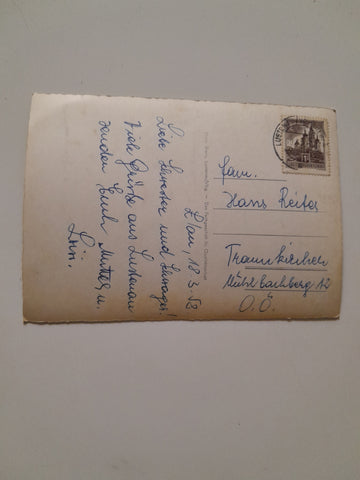 18.3.58
Liebe Schwester und Schwager!
Viele Grüße aus Lustenau
senden Euch Mutter u.
Fam.
Hans Reiter
Traunkirchen
Mühlbachberg 12
O.Ö.